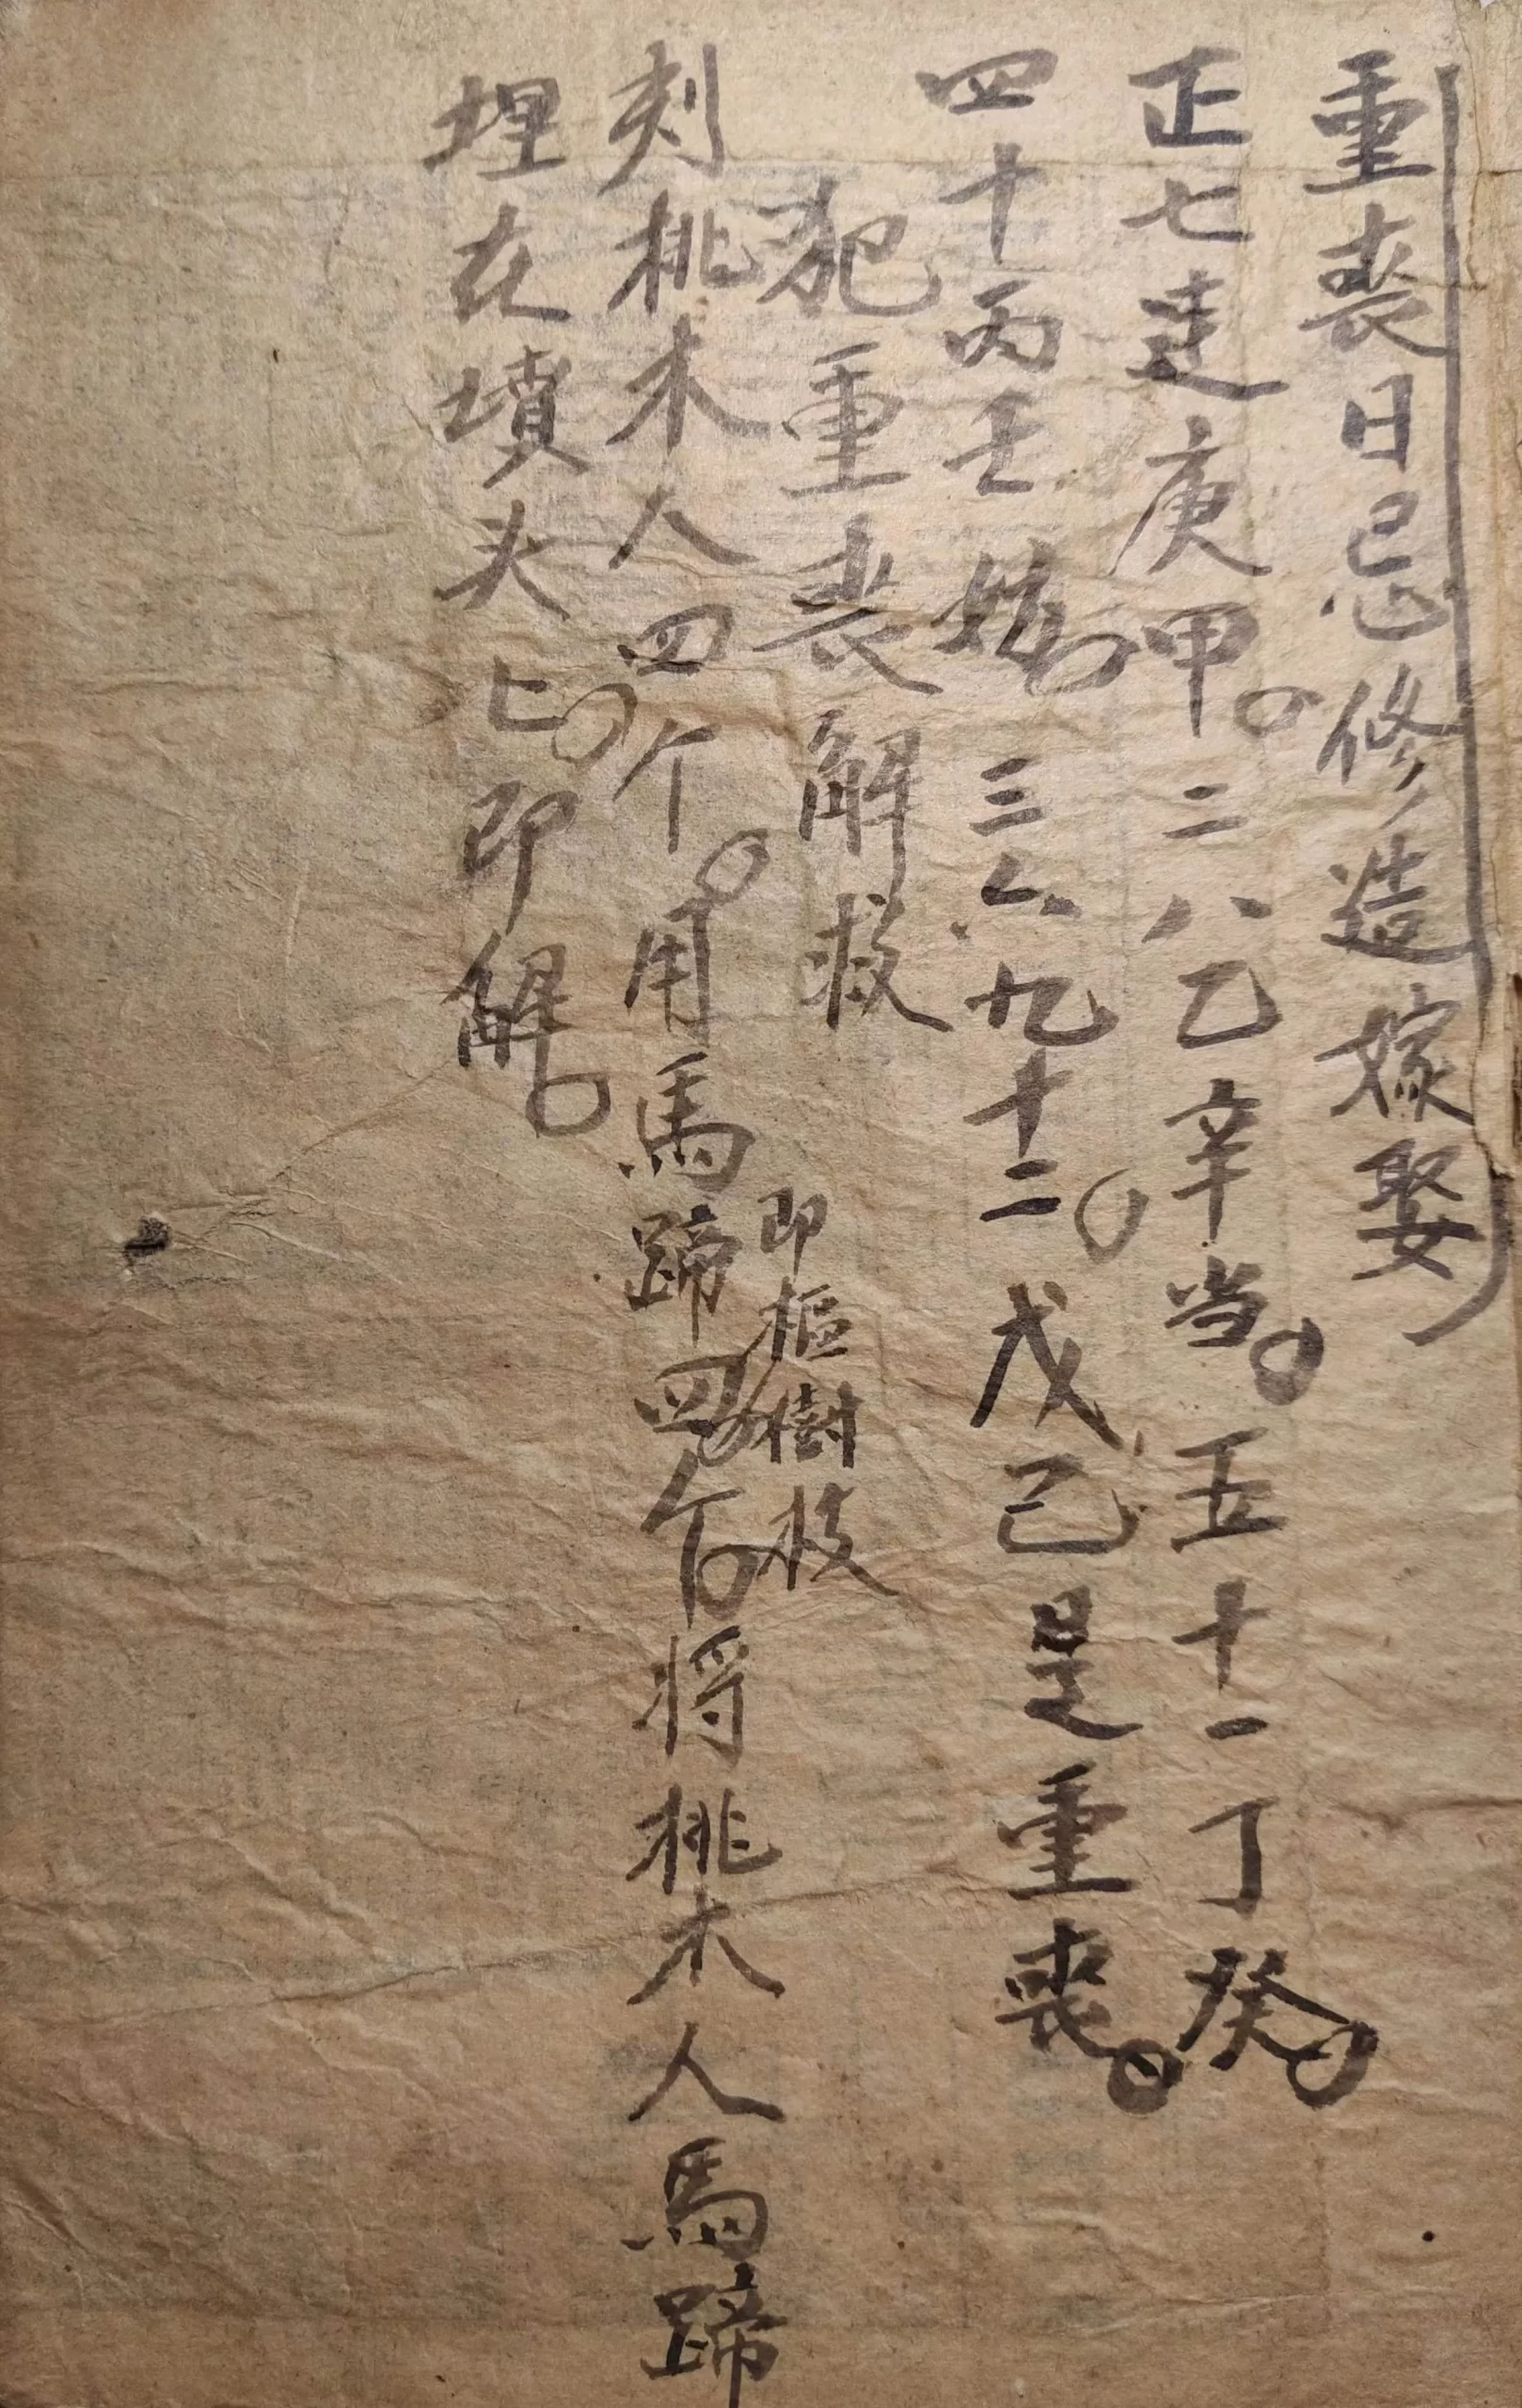 重喪日忌修造嫁娶
正七連庚甲。二八乙辛当。五十一丁癸。
四十丙壬妨。三六九十二。戊己是重喪。
犯重丧解救
刻桃木人四个。用馬蹄四个。将桃木人馬蹄
即樞樹枝
埋在墳头上。即解。